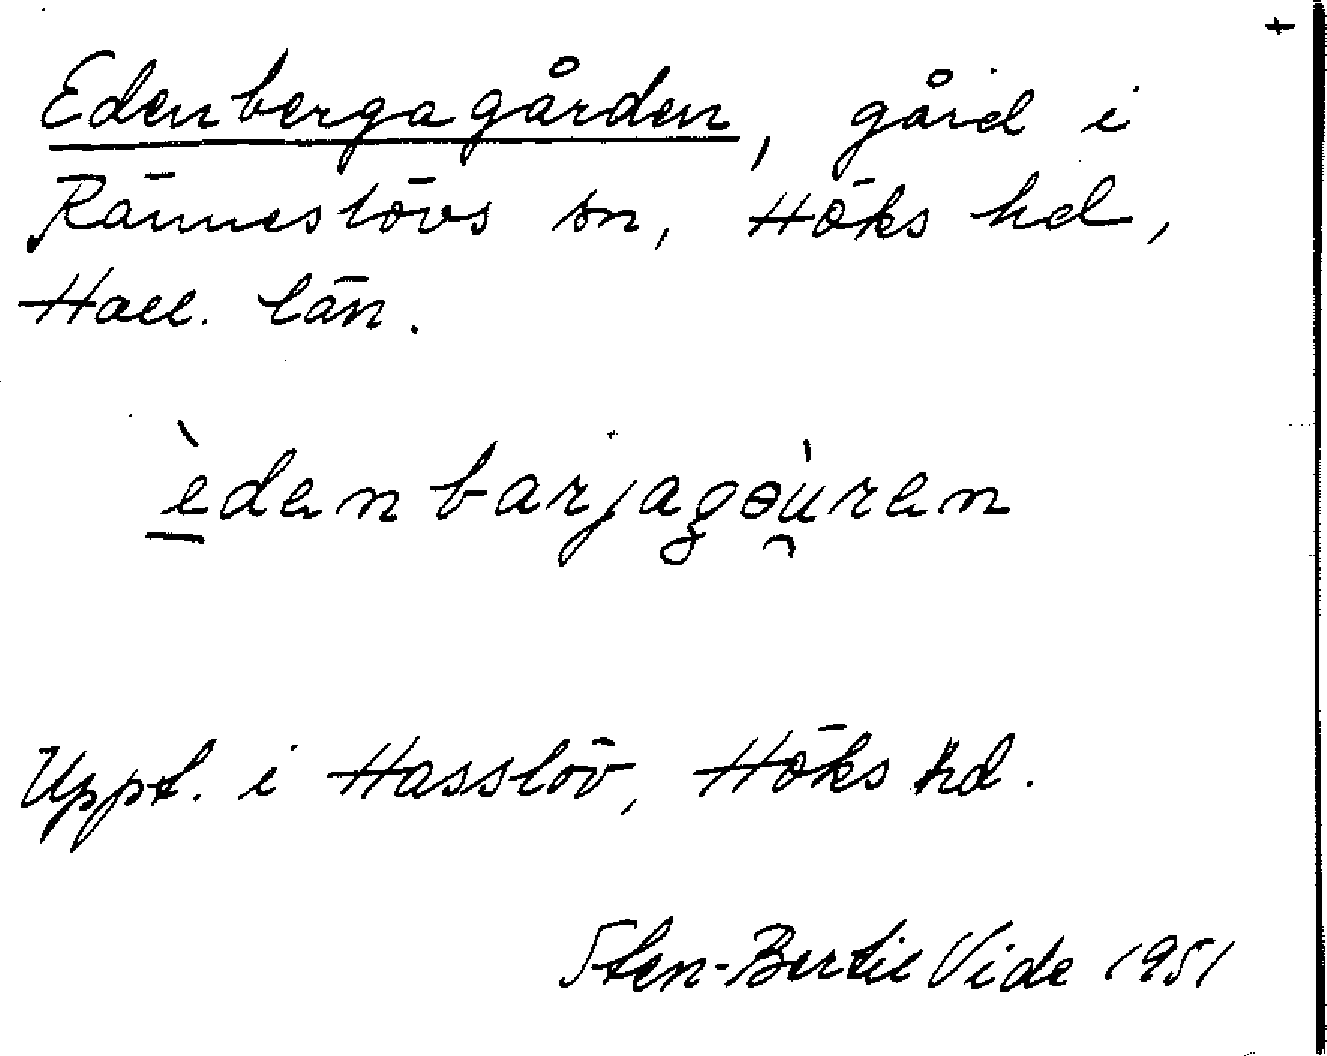 +
Edenbergagården, gård i
Ränneslövs sn, Höks hd,
Hall. län.
èdenbarjagəùren
Uppt. i Hasslöv, Höks hd.
Sten-Bertil Vide 1951